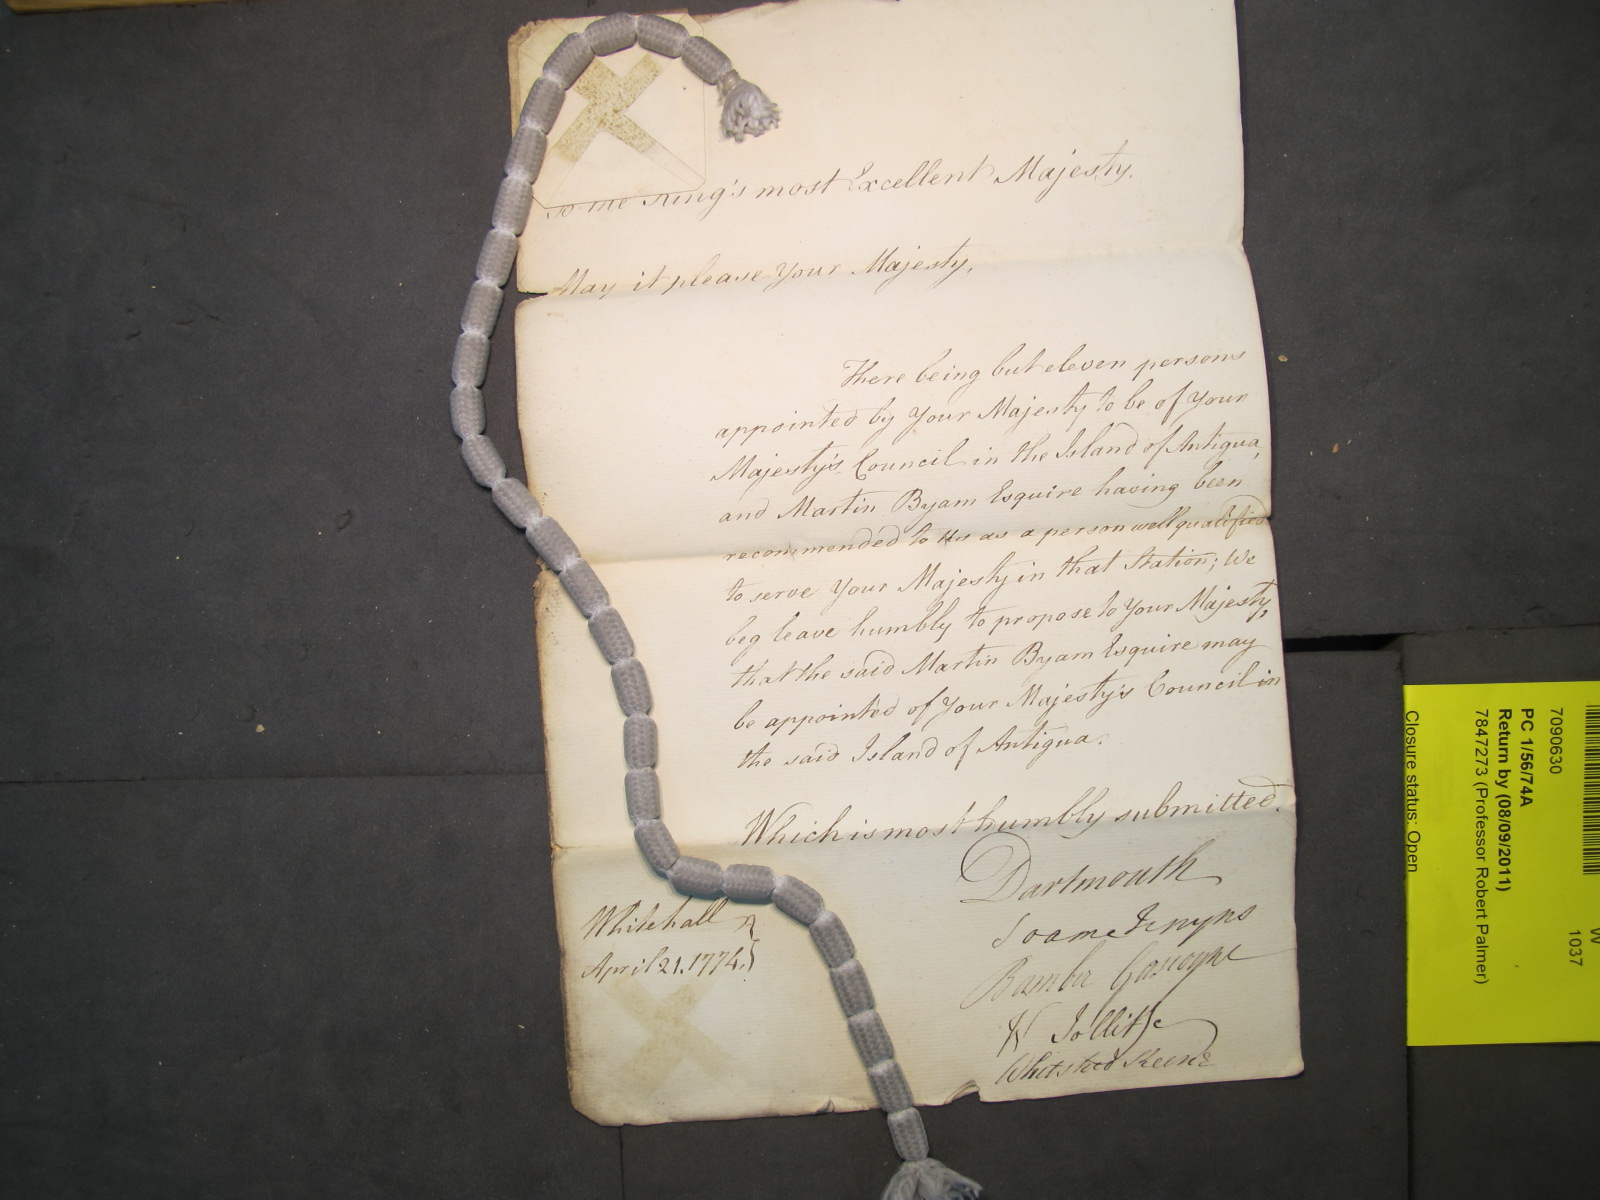 To the King's most Excellent Majesty.
May it please Your Majesty,
There being but eleven persons
appointed by Your Majesty to be of Your
Majesty's Council in the Island of Antigua,
and Martin Byam Esquire having been
recommended to Us as a person well qualified
to serve Your Majesty in that Station; We
beg leave humbly to propose to Your Majesty,
that the said Martin Byam Esquire may
be appointed of Your Majesty's Council in
the said Island of Antigua.
Which is most humbly submitted.
Dartmouth
Soame Jenyns
Bamber Gascoyne
W Jolliffe
Whitshed Keene
Whitehall
April 21. 1774.
W
1037
7090630
PC 1/56/74A
Return by (08/09/2011)
7847273 (Professor Robert Palmer)
Closure status: Open